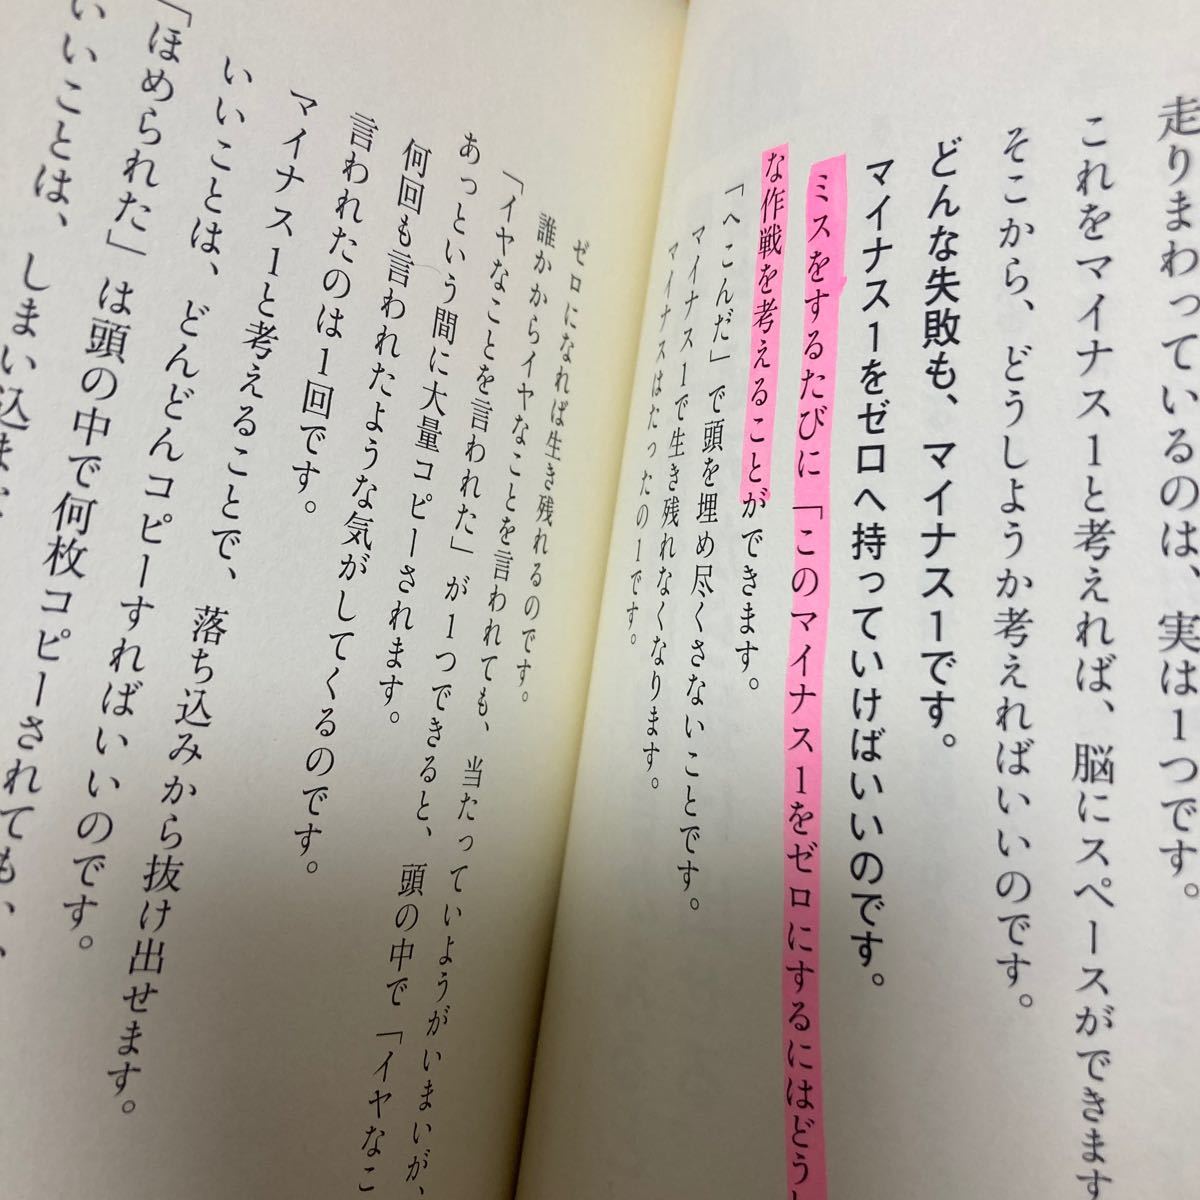 走りまわっているのは、実は1つです。
これをマイナス1と考えれば、脳にスペースができます
そこから、どうしようか考えればいいのです。
どんな失敗も、マイナス1です。
マイナス1をゼロへ持っていけばいいのです。
ミスをするたびに「このマイナス1をゼロにするにはどうし
な作戦を考えることができます。
「へこんだ」で頭を埋め尽くさないことです。
マイナス1で生き残れなくなります。
マイナスはたったの1です。
ゼロになれば生き残れるのです。
誰かからイヤなことを言われても、当たっていようがいまいが、
「イヤなことを言われた」が1つできると、頭の中で「イヤなこ
あっという間に大量コピーされます。
何回も言われたような気がしてくるのです。
言われたのは1回です。
マイナス1と考えることで、落ち込みから抜け出せます。
いいことは、どんどんコピーすればいいのです。
「ほめられた」は頭の中で何枚コピーされても、
いいことは、しまい込ま